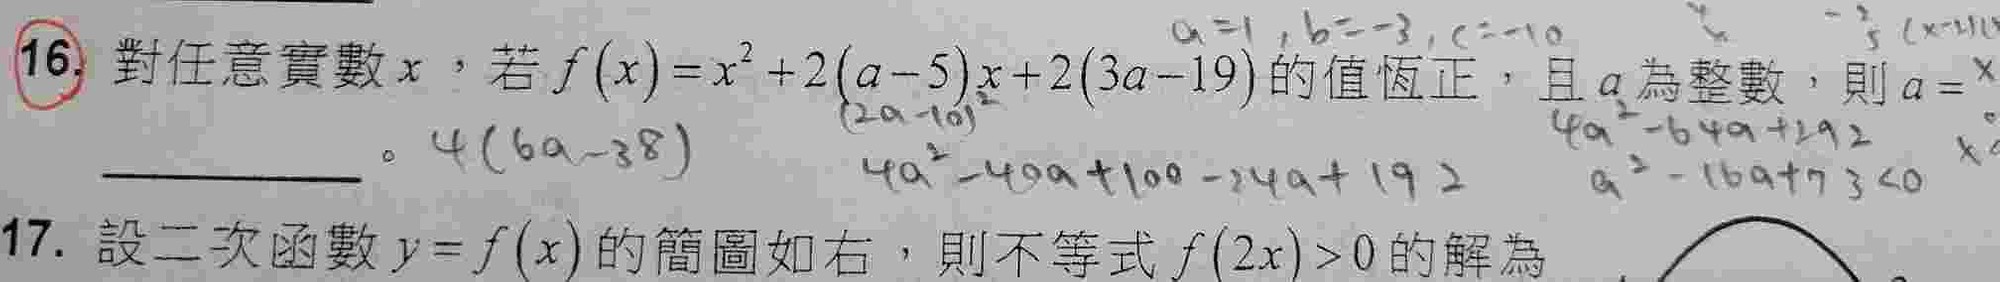 a=1, b=-3, c=-10
16. 對任意實數 x，若 f(x)=x²+2(a-5)x+2(3a-19) 的值恆正，且 a 為整數，則 a=
(2a-10)²
4a²-64a+292
________。 4(6a-38)
4a²-40a+100-24a+192
a²-16a+73<0
17. 設二次函數 y=f(x) 的簡圖如右，則不等式 f(2x)>0 的解為